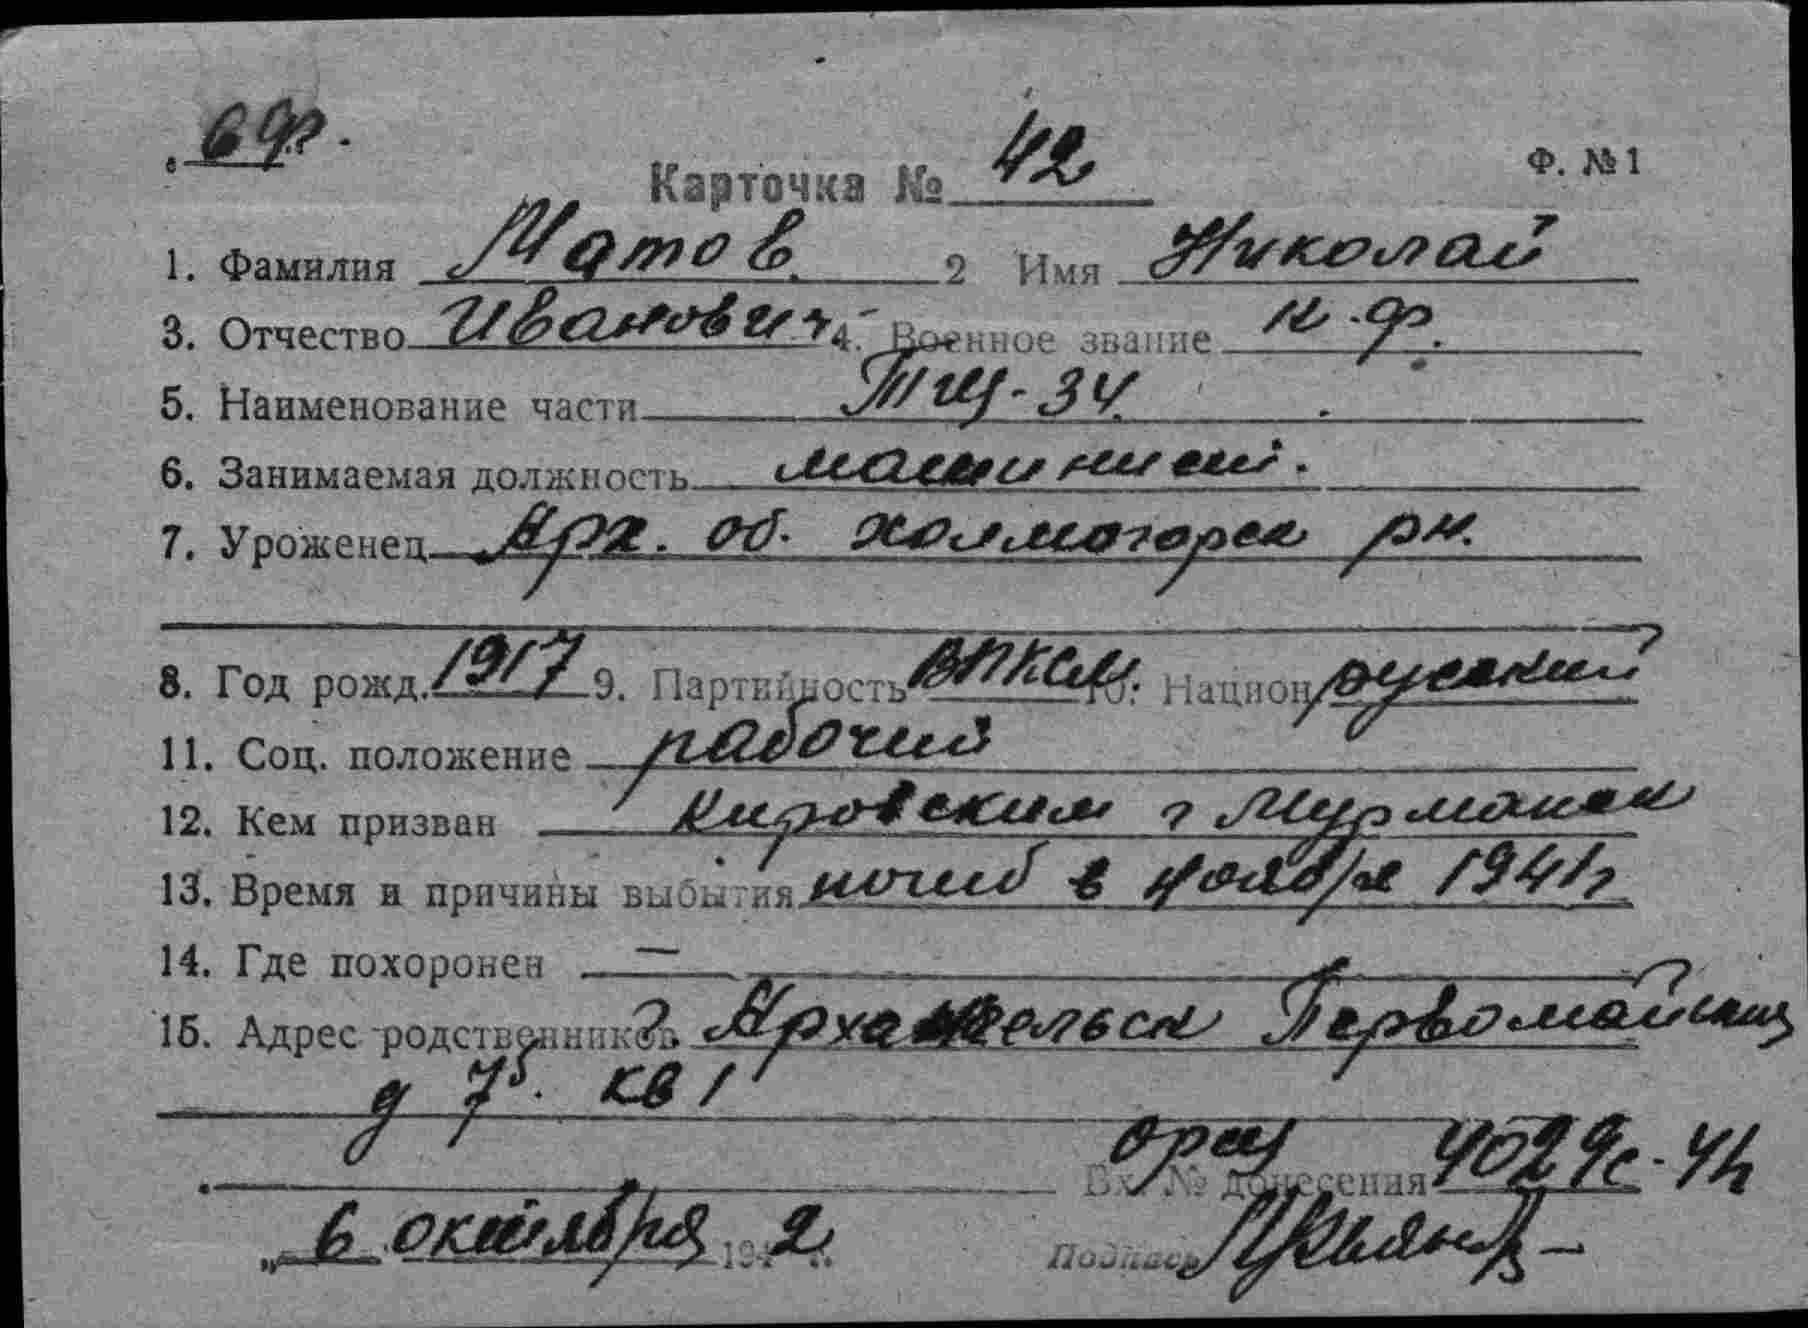 69г.
Карточка № 42 Ф. № 1
1. Фамилия Матов 2 Имя Николай
3. Отчество Иванович 4. Военное звание к.ф.
5. Наименование части ТЩ-34
6. Занимаемая должность машинист.
7. Уроженец Арх. об. холмогорск рн.
8. Год рожд. 1917 9. Партийность ВЛКСМ 10. Национ русский
11. Соц. положение рабочий
12. Кем призван Кировским г Мурманск
13. Время и причины выбытия погиб в ноябре 1941г
14. Где похоронен —
15. Адрес родственников г. Архангельск Первомайская
д 75. кв 1
Вх. № донесения 4029с-42
„6 октября 1942 г. Подпись